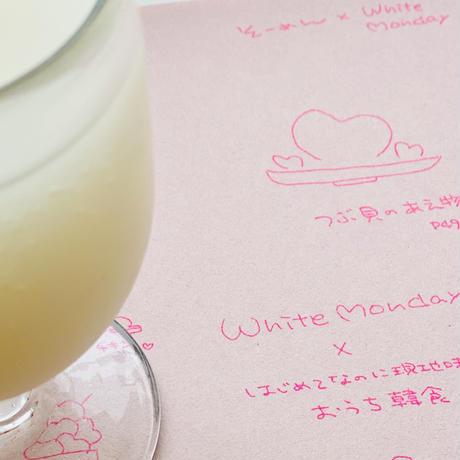 そーめん × White
Monday
つぶ貝のあえ物
P49
White Monday
×
はじめてなのに現地味
おうち韓食